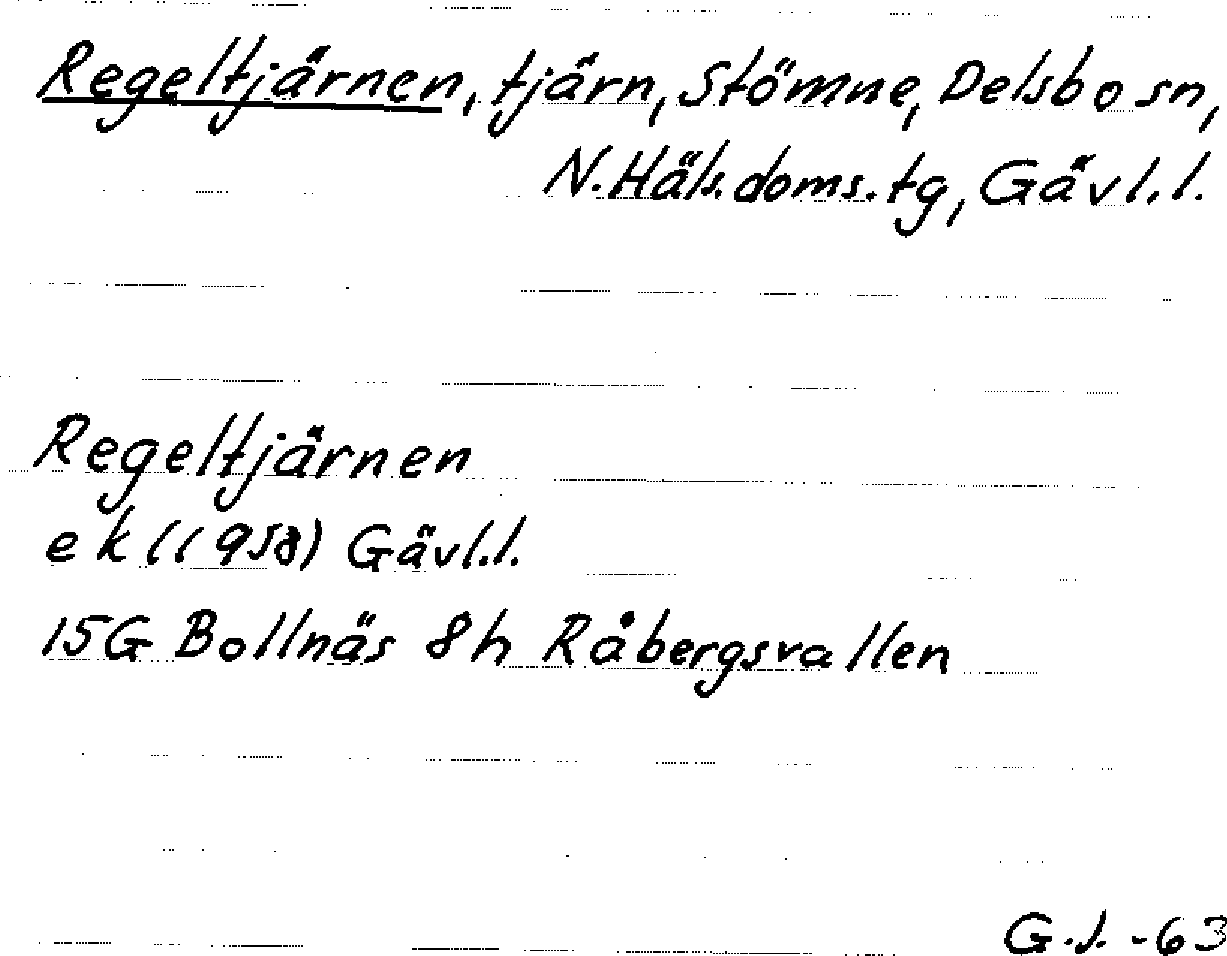 Regeltjärnen, tjärn, Stömne, Delsbo sn,
N.Häls.doms.tg, Gävl.l.
Regeltjärnen
e k (1958) Gävl.l.
15G Bollnäs 8h Råbergsvallen
G.J. -63